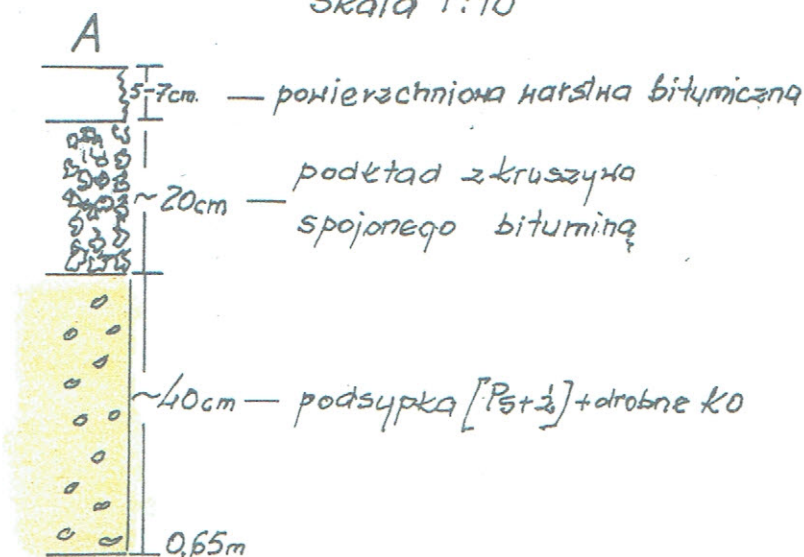 Skala 1:10
A
5-7cm. — powierzchniowa warstwa bitumiczna
~20cm — podkład z kruszywa
spojonego bituminą
~40cm — podsypka [Ps+ż]+drobne KO
0,65m